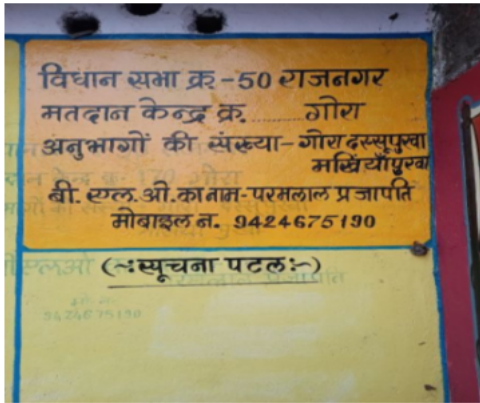 विधान सभा क्र.-50 राजनगर
मतदान केन्द्र क्र. ........ गोरा
अनुभागों की संख्या- गोरा दस्सूपुरवा
मखियाँपुरवा
बी. एल. ओ. का नाम- परमलाल प्रजापति
मोबाइल न. 9424675190
(-:सूचना पटल:-)
9424675190